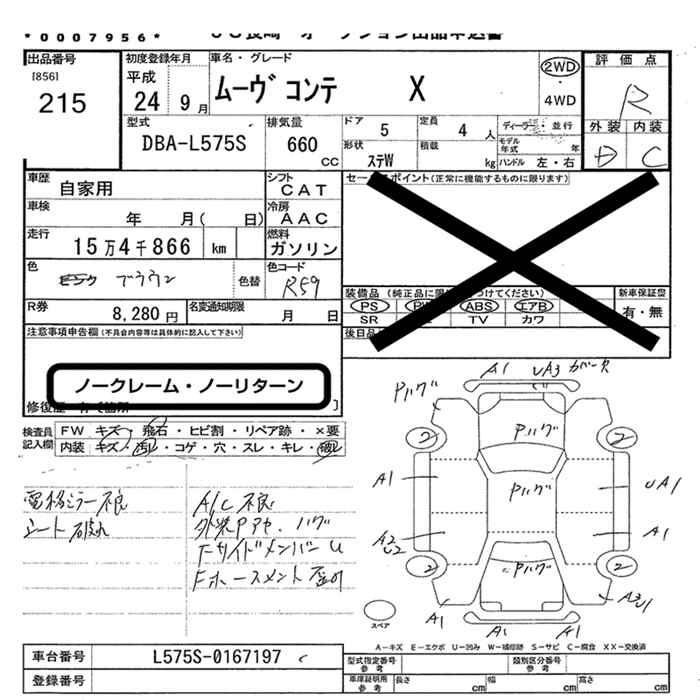 *0007956*
出品番号 初度登録年月 車名・グレード
[856] 平成 ムーヴ コンテ X 2WD
215 24年 9月 ・4WD
評価点
R
型式 排気量 ドア 5 定員 4人 ディーラー・並行
DBA-L575S 660cc 形状 ステW 積載 kg モデル年式 年 ハンドル 左・右
外装 内装
D C
車歴 自家用 シフト CAT
セールスポイント(正常に機能するものに限ります)
車検 年 月( 日) 冷房 AAC
走行 15万4千866 km 燃料 ガソリン
色 ブラウン 色替 色コード R59
R券 8,280円 名変通知期限 月 日
装備品 (純正品に限 つけてください) 新車保証書
PS PW ABS エアB 有・無
SR TV カワ
後日品
注意事項申告欄(不具合内容等は具体的に記入して下さい)
ノークレーム・ノーリターン
修復歴
検査員記入欄 FW キズ・飛石・ヒビ割・リペア跡・×要
内装 キズ・汚レ・コゲ・穴・スレ・キレ・破レ
電格ミラー不良
シート破れ
A/C不良
外装Pアセ、ハゲ
FサイドメンバーU
A1 UA3 カバーX
Pハゲ
Pハゲ
2 2
A1 Pハゲ UA1
A2 U2 A1
2 Pハゲ 2
A1 A1 A1
スペア
A-キズ E-エクボ U-凹み W-補修跡 S-サビ C-腐食 XX-交換済
車台番号 L575S-0167197
登録番号
型式指定番号 参考 類別区分番号 参考
車庫証明用 参考 長さ cm 幅 cm 高さ cm